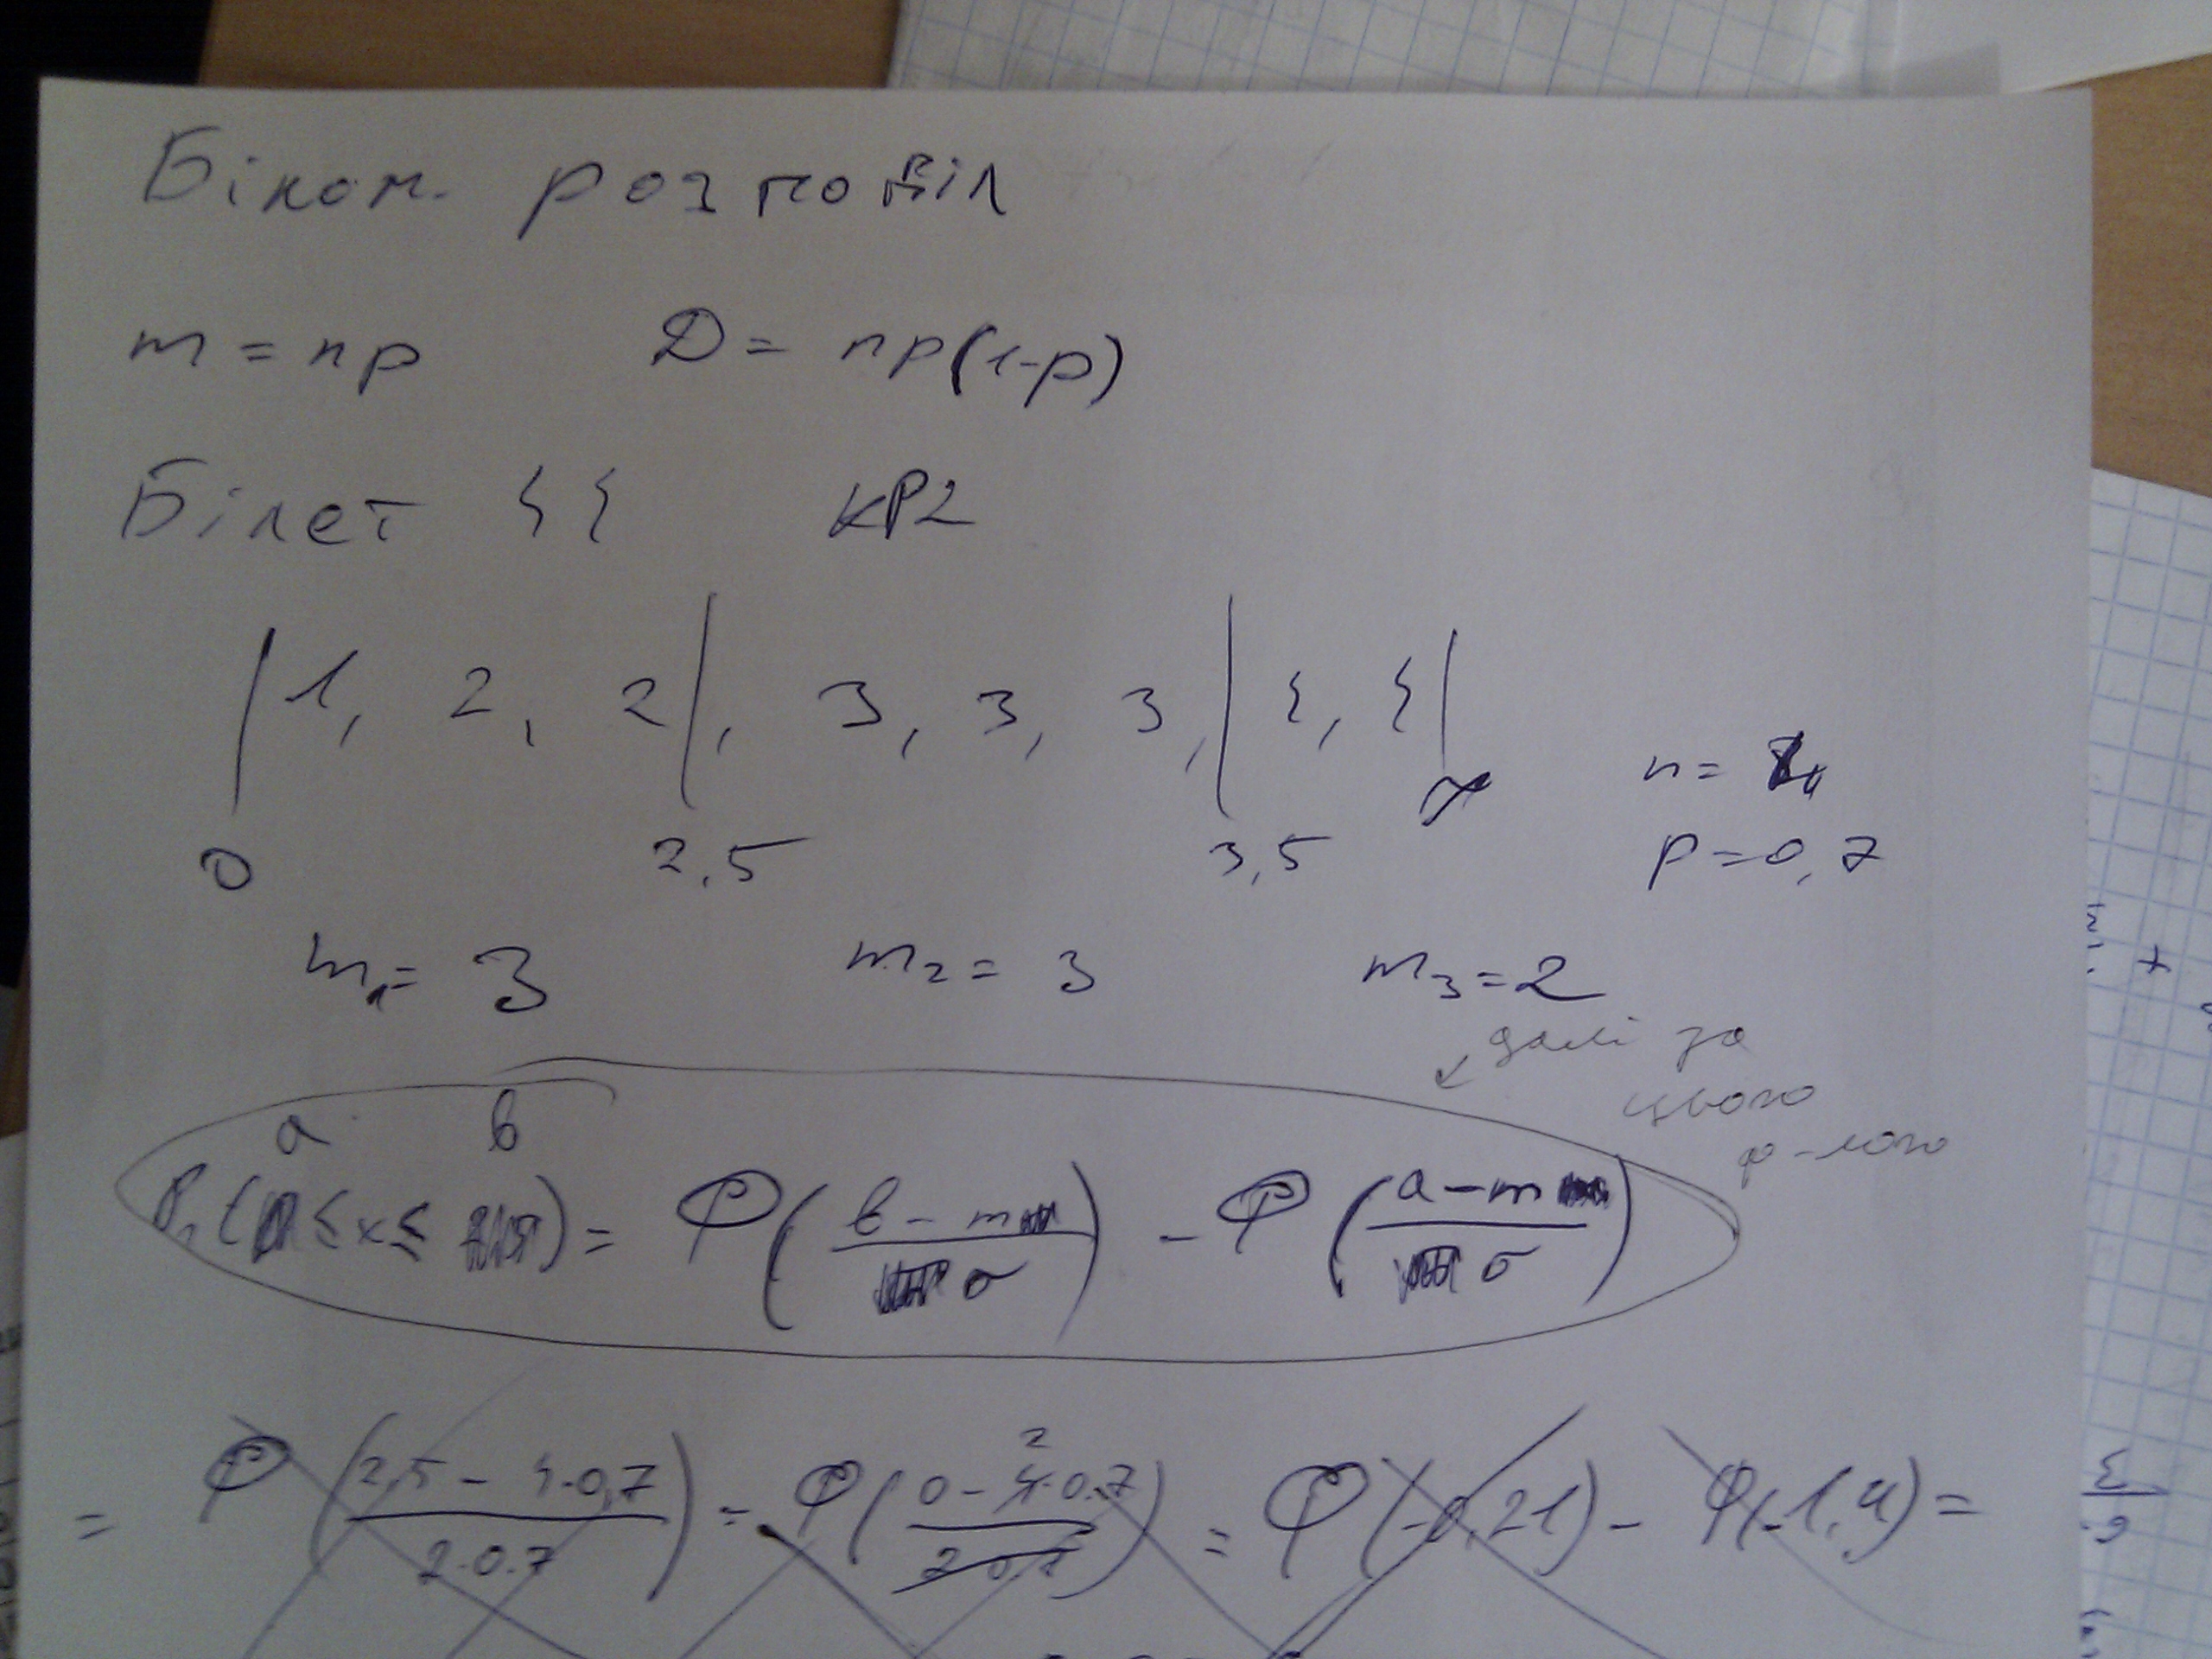 Біном. розподіл
m = np D = np(1-p)
Білет 44 КР2
|1, 2, 2|, 3, 3, 3,| 4, 4|
n = 4
0 2,5 3,5 ∞
p = 0,7
m₁ = 3 m₂ = 3 m₃ = 2
↙ далі за
цього
ф-лого
a b
P₁( ≤ x ≤ ) = Φ((b - m)/σ) - Φ((a - m)/σ)
= Φ((2,5 - 4·0,7)/(2·0.7)) - Φ((0 - 4·0.7)/(2·0.7)) = Φ(-0,21) - Φ(-1,4) =